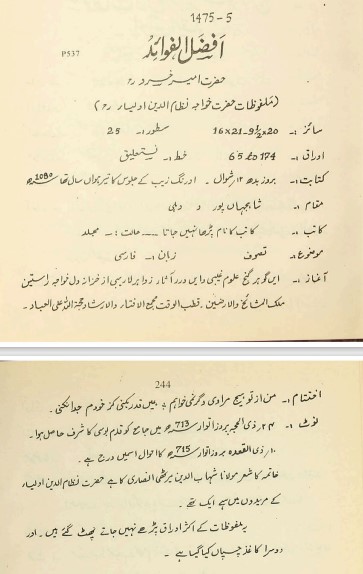 1475-5
افضل الفوائد
P537
حضرت امیر خسرو رح
(ملفوظات حضرت خواجہ نظام الدین اولیاء رح)
سائز :۔ 16x21-9½x20 سطور :۔ 25
اوراق :۔ 65 to 174 خط :۔ نستعلیق
کتابت :۔ بروز بدھ ۱۲ شوال ۔ اورنگ زیب کے جلوس کا تیرہواں سال تھا 1080ھ
مقام :۔ شاہجہاں پور و دہلی
کاتب :۔ کاتب کا نام پڑھا نہیں جاتا ۔ــ حالت :۔ مجلد
موضوع :۔ تصوف زبان :۔ فارسی
آغاز :۔ ایں گوہر گنج علوم غیبی و ایں درر آثار زواہر لاریبی از خزائن دل خواجہ راستین
ملک المشائخ والارضین ۔ قطب الوقت مجمع الافتقار والارشاد حجۃ اللہ علی العباد ۔
244
اختتام :۔ من از تو ہیچ مرادی دگر نمی خواہم ؛ ہمیں قدر بکنی کز خودم جدا نکنی ۔
نوٹ :۔ ۲۴ ذی الحجہ بروز اتوار 713ھ میں جامع کو قدم بوسی کا شرف حاصل ہوا ۔
۱۰ ذی القعدہ بروز اتوار 715ھ کا احوال اسمیں درج ہے ۔
خاتمہ کا شعر مولانا شہاب الدین میرٹھی النصاری کا ہے حضرت نظام الدین اولیاء
کے مریدوں میں سے ایک تھے ۔
یہ ملفوظات کے اکثر اوراق پڑھے نہیں جاتے پھٹ گئے ہیں ۔ اور
دوسرا کاغذ چسپاں کیا گیا ہے ۔